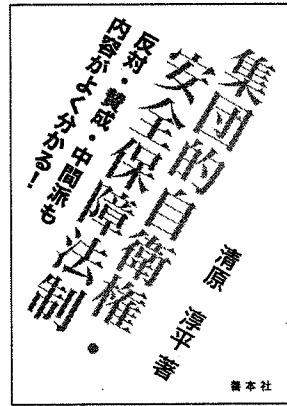 集団的自衛権・
安全保障法制
反対・賛成・中間派も
内容がよく分かる!
清原 淳平 著
善本社